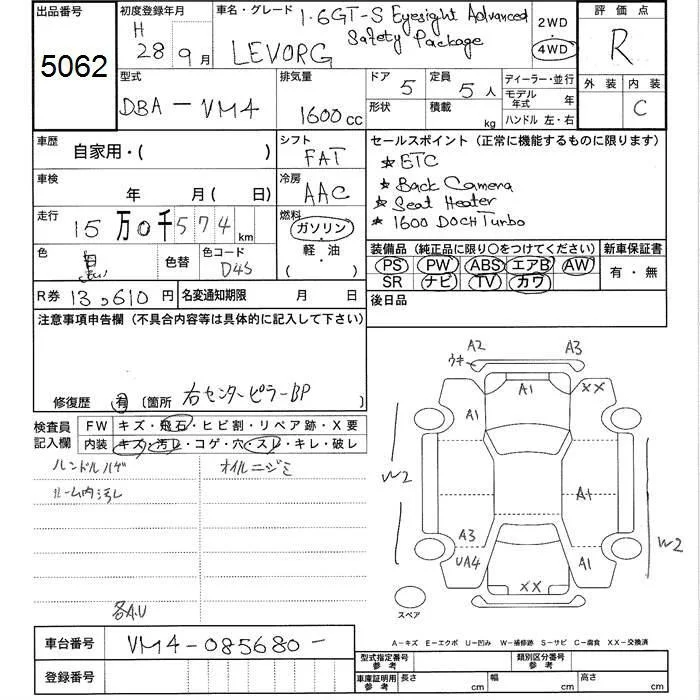 出品番号
5062
初度登録年月
H 28 9月
車名・グレード
1.6GT-S Eyesight Advanced
Safety Package
LEVORG
2WD
4WD
評価点
R
外装 内装
C
型式
DBA-VM4
排気量
1600cc
ドア 5
形状
定員 5人
積載 kg
ディーラー・並行
モデル年式 年
ハンドル 左・右
車歴
自家用・( )
シフト
FAT
車検
年 月( 日)
冷房
AAC
走行
15万0千574km
燃料
ガソリン・軽・油
( )
色
色替
色コード
D4S
R券 13,610円
名変通知期限 月 日
セールスポイント(正常に機能するものに限ります)
★ETC
★Back Camera
★Seat Heater
★1600 DOCH Turbo
装備品(純正品に限り○をつけてください)
PS PW ABS エアB AW
SR ナビ TV カワ
新車保証書
有・無
後日品
注意事項申告欄(不具合内容等は具体的に記入して下さい)
修復歴 有 〔箇所 右センターピラーBP 〕
検査員記入欄
FW キズ・飛石・ヒビ割・リペア跡・X要
内装 キズ・汚レ・コゲ・穴・スレ・キレ・破レ
ハンドルハゲ
オイルニジミ
ルーム内汚レ
各A.U
A2 A3
ウキ
A1
XX
A1
W2
A1
A3
UA4
A1
W2
XX
スペア
車台番号
VM4-085680-
登録番号
A-キズ E-エクボ U-凹み W-補修跡 S-サビ C-腐食 XX-交換済
型式指定番号 参考
類別区分番号 参考
車庫証明用 参考
長さ cm
幅 cm
高さ cm